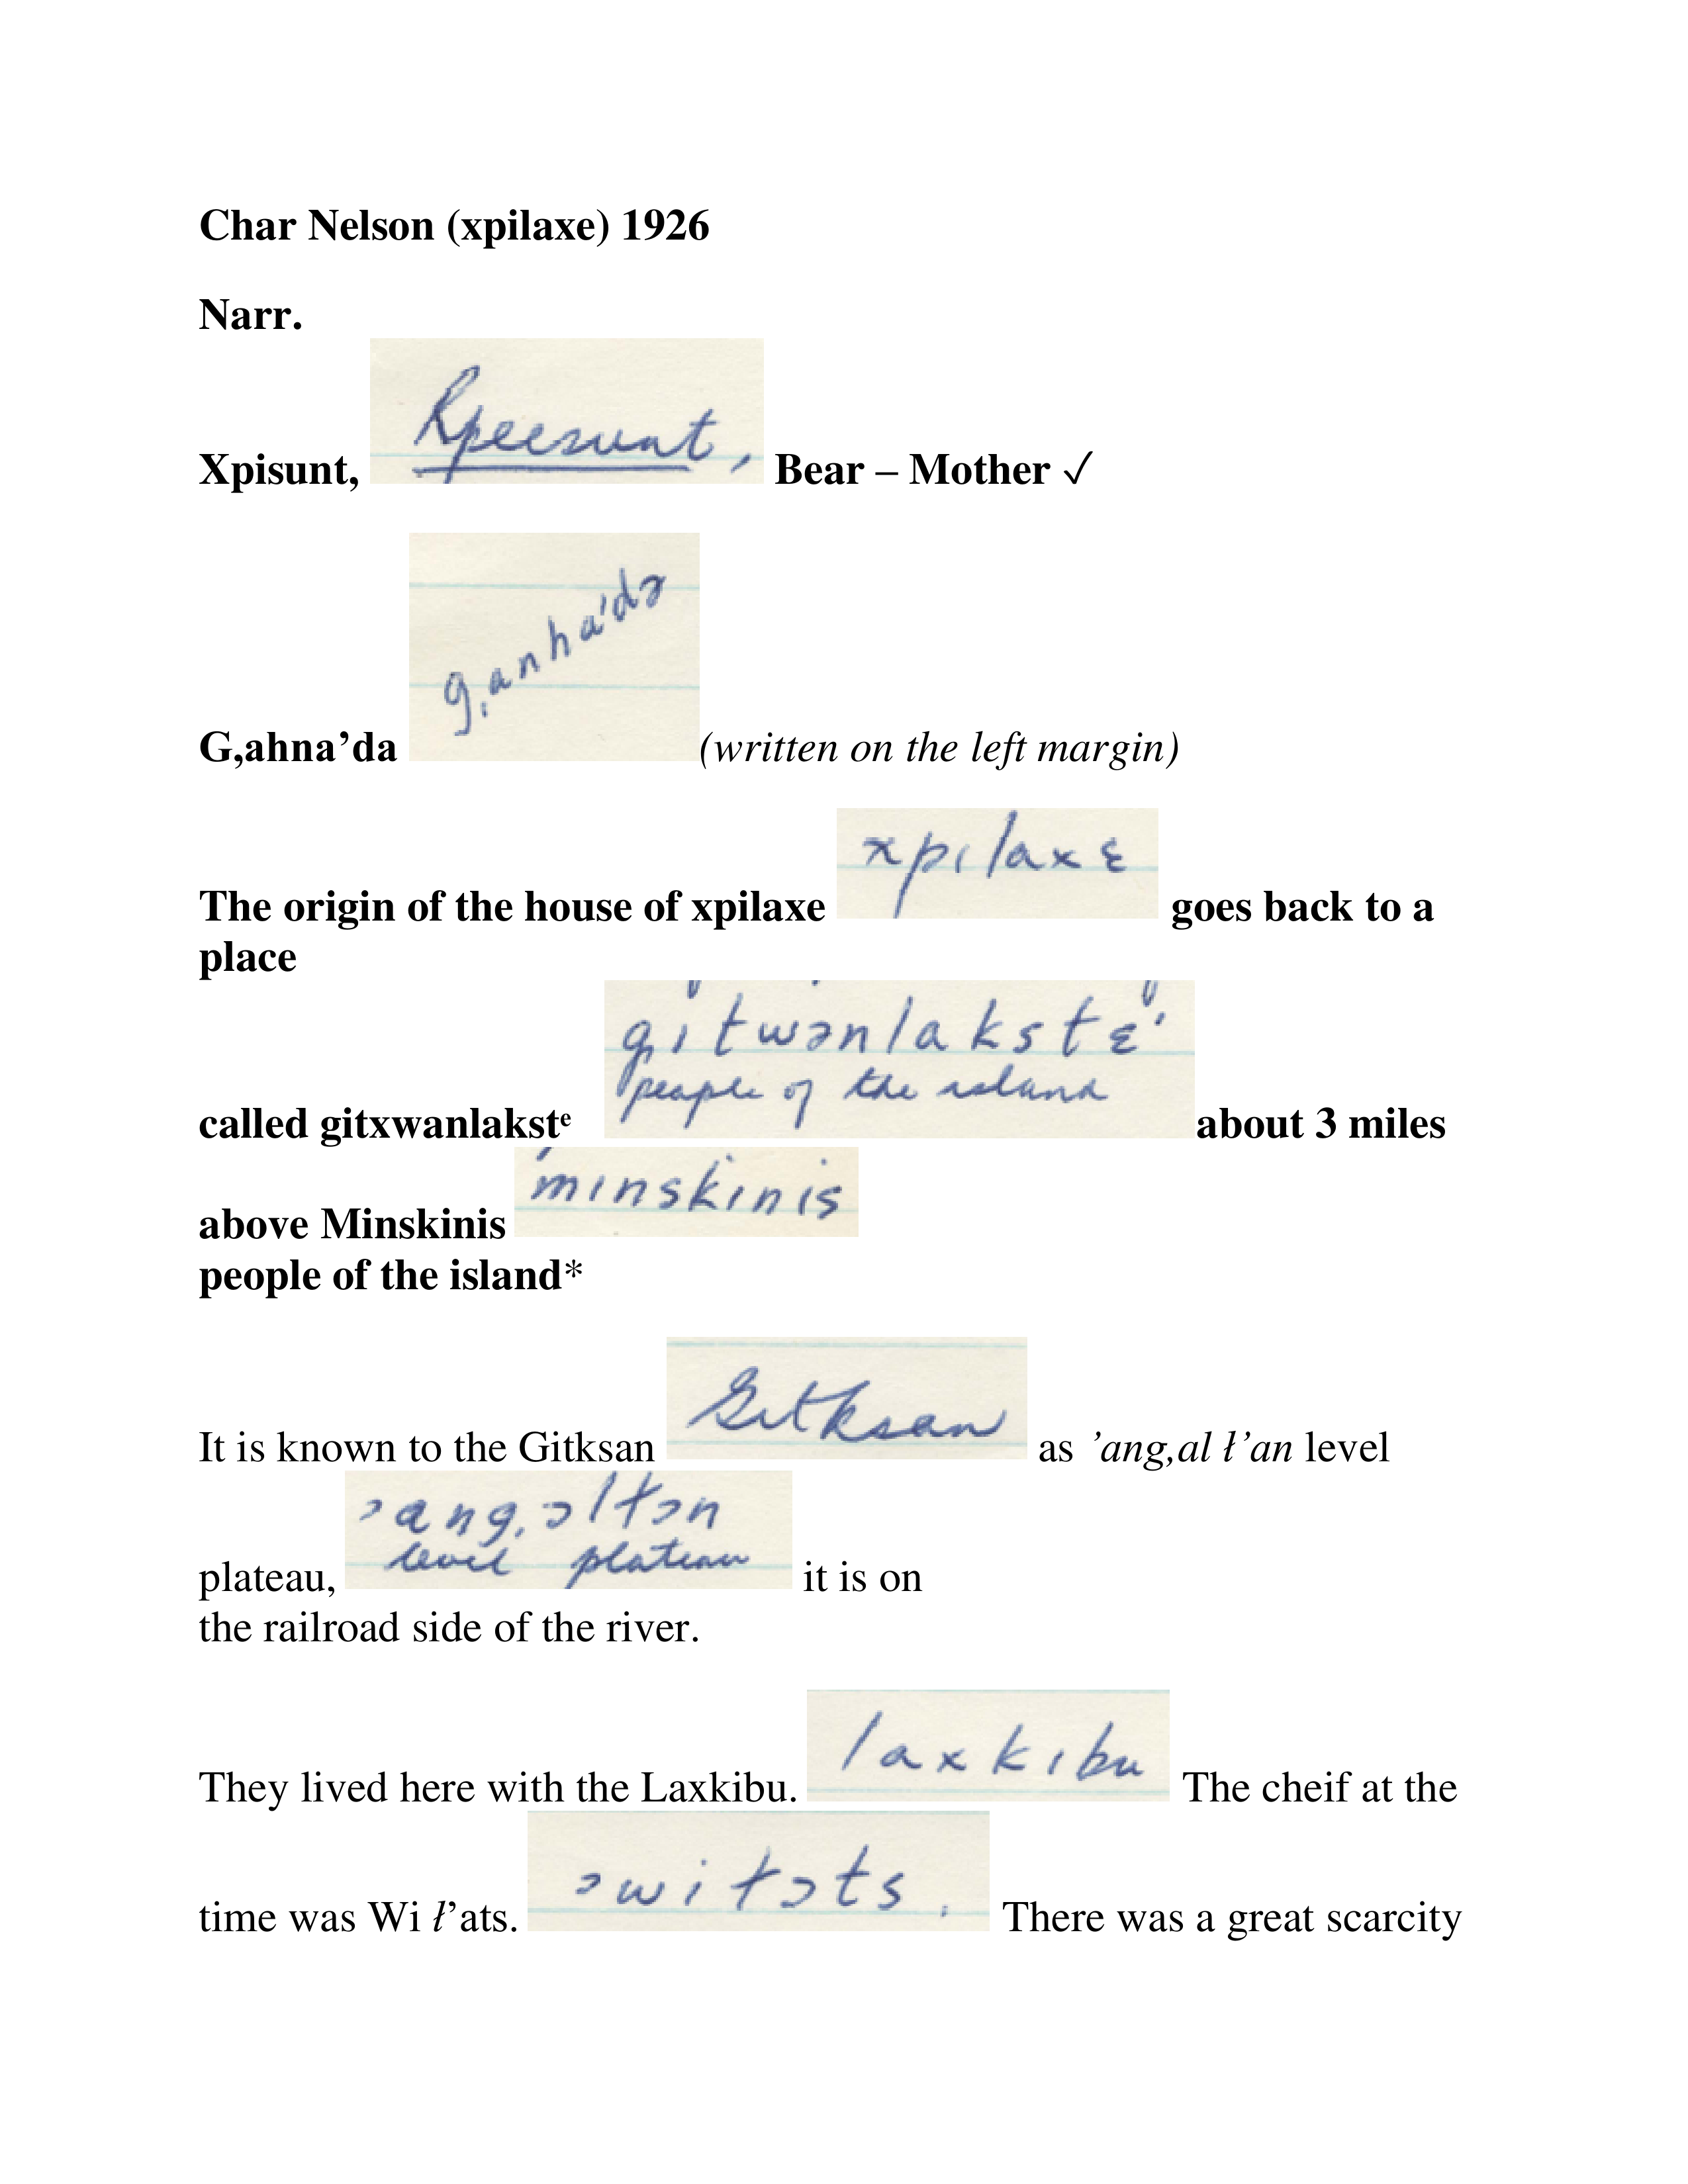 Char Nelson (xpilaxe) 1926
Narr.
Xpisunt, Kpeesunt, Bear – Mother ✓
G,ahna’da g,anha'də (written on the left margin)
The origin of the house of xpilaxe xpılaxɛ goes back to a
place
called gitxwanlakstᵉ gıtwənlakstɛ' about 3 miles
people of the island
above Minskinis mınskınis
people of the island*
It is known to the Gitksan Gitksan as ’ang,al ł’an level
plateau, ɔang,ɔlłɔn it is on
level plateau
the railroad side of the river.
They lived here with the Laxkibu. laxkıbu The cheif at the
time was Wi ł’ats. ɔwiłɔts. There was a great scarcity